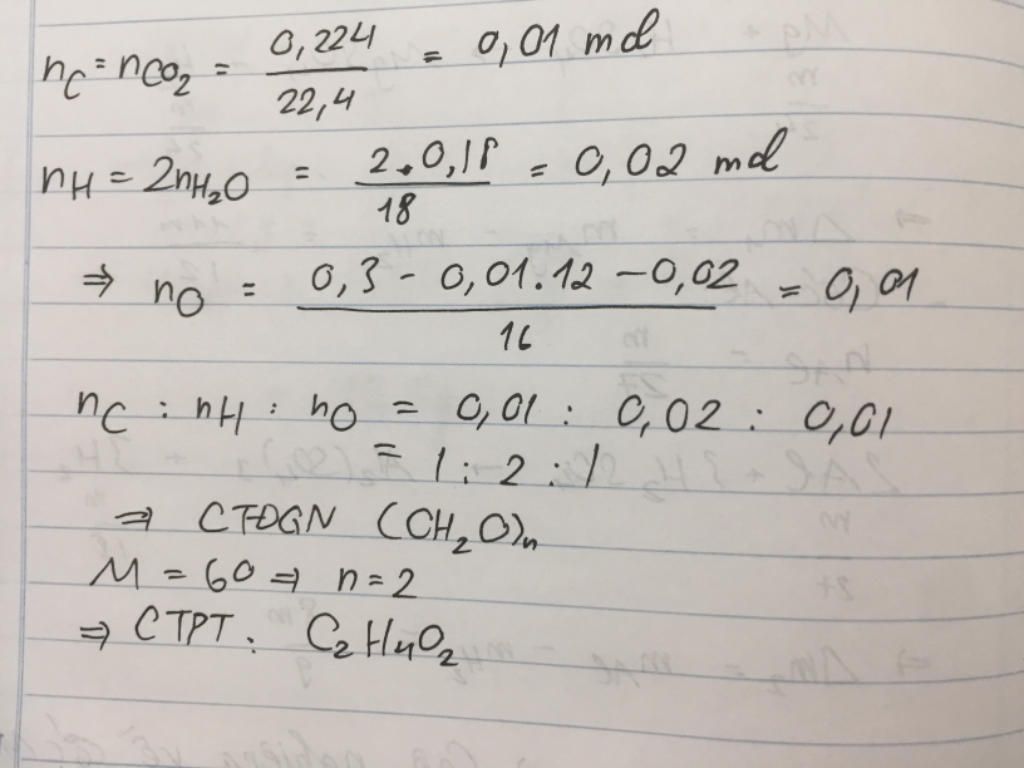 nC = nCO₂ = 0,224 / 22,4 = 0,01 mol
nH = 2nH₂O = 2.0,18 / 18 = 0,02 mol
⇒ nO = 0,3 - 0,01.12 - 0,02 / 16 = 0,01
nC : nH : nO = 0,01 : 0,02 : 0,01
= 1 : 2 : 1
⇒ CTĐGN (CH₂O)n
M = 60 ⇒ n = 2
⇒ CTPT : C₂H₄O₂